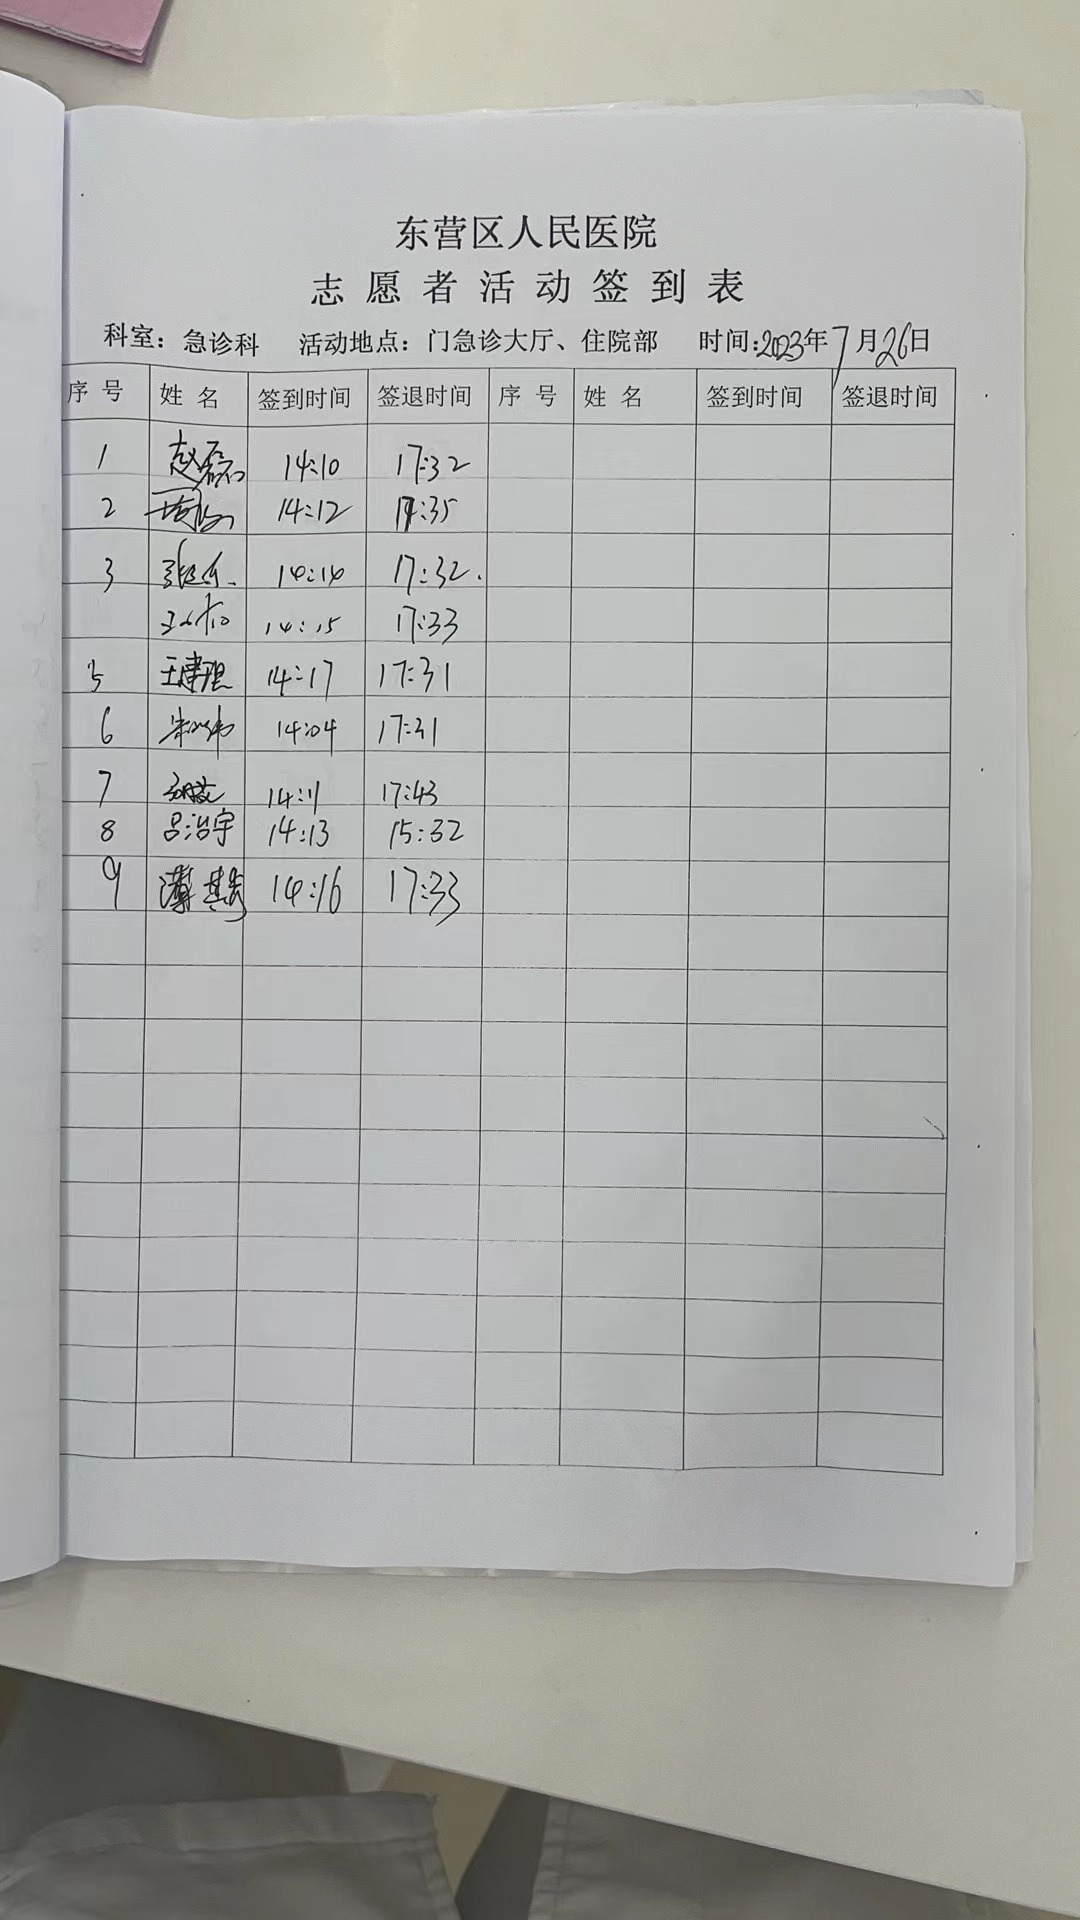 东营区人民医院
志愿者活动签到表
科室：急诊科 活动地点：门急诊大厅、住院部 时间:2023年7月26日
序号 姓名 签到时间 签退时间 序号 姓名 签到时间 签退时间
1 赵磊 14:10 17:32
2 14:12 17:35
3 14:14 17:32.
14:15 17:33
5 王建琨 14:17 17:31
6 14:04 17:31
7 14:11 17:43
8 吕治宇 14:13 15:32
9 14:16 17:33